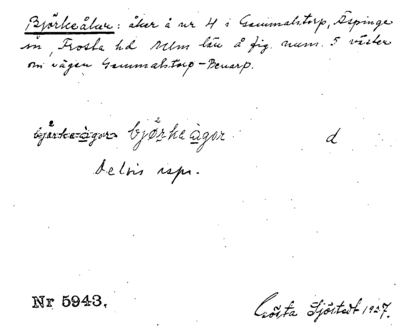 Björkeåker: åker å nr 4 i Gammalstorp, Äspinge
sn, Frosta hd Mlm län å fig. num. 5 väster
om vägen Gammalstorp - Benarp.
bjårka-ågor bjǻrka ågor d
Delvis uspr.
Nr 5943.
Gösta Sjöstedt 1927.